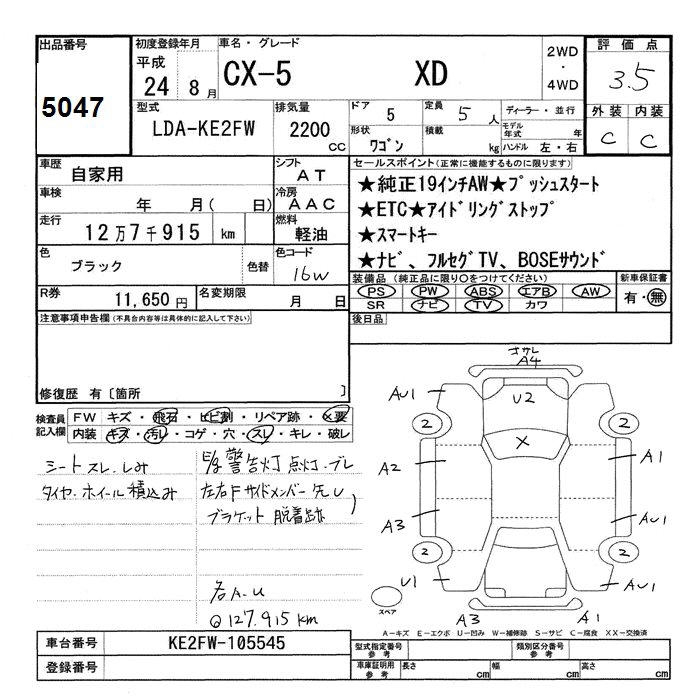 出品番号
5047
初度登録年月
平成
24 8月
車名・グレード
CX-5 XD
2WD
・
4WD
評価点
3.5
型式
LDA-KE2FW
排気量
2200
CC
ドア
5
定員
5人
ディーラー・並行
形状
ワゴン
積載
kg
モデル年式
年
ハンドル 左・右
外装 内装
C C
車歴
自家用
シフト
AT
車検
年 月( 日)
冷房
AAC
走行
12万7千915 km
燃料
軽油
色
ブラック
色替
色コード
16W
R券
11,650円
名変期限
月 日
セールスポイント(正常に機能するものに限ります)
★純正19インチAW★プッシュスタート
★ETC★アイドリングストップ
★スマートキー
★ナビ、フルセグTV、BOSEサウンド
装備品 (純正品に限り○をつけてください)
PS PW ABS エアB AW
SR ナビ TV カワ
新車保証書
有・無
後日品
注意事項申告欄(不具合内容等は具体的に記入して下さい)
修復歴 有〔箇所 〕
検査員記入欄
FW キズ・飛石・ヒビ割・リペア跡・×要
内装 キズ・汚レ・コゲ・穴・スレ・キレ・破レ
シートスレ.しみ
タイヤ.ホイール積込み
警告灯点灯.ブレ
左右Fサイドメンバー先U
ブラケット 脱着跡
各A.U
Q127.915km
ゴサレ
A4
AU1
U2
2
2
X
A2
A1
A3
AU1
2
2
U1
AU1
スペア
A3
A1
A-キズ E-エクボ U-凹み W-補修跡 S-サビ C-腐食 XX-交換済
車台番号
KE2FW-105545
登録番号
型式指定番号
参考
類別区分番号
参考
車庫証明用
参考
長さ cm
幅 cm
高さ cm